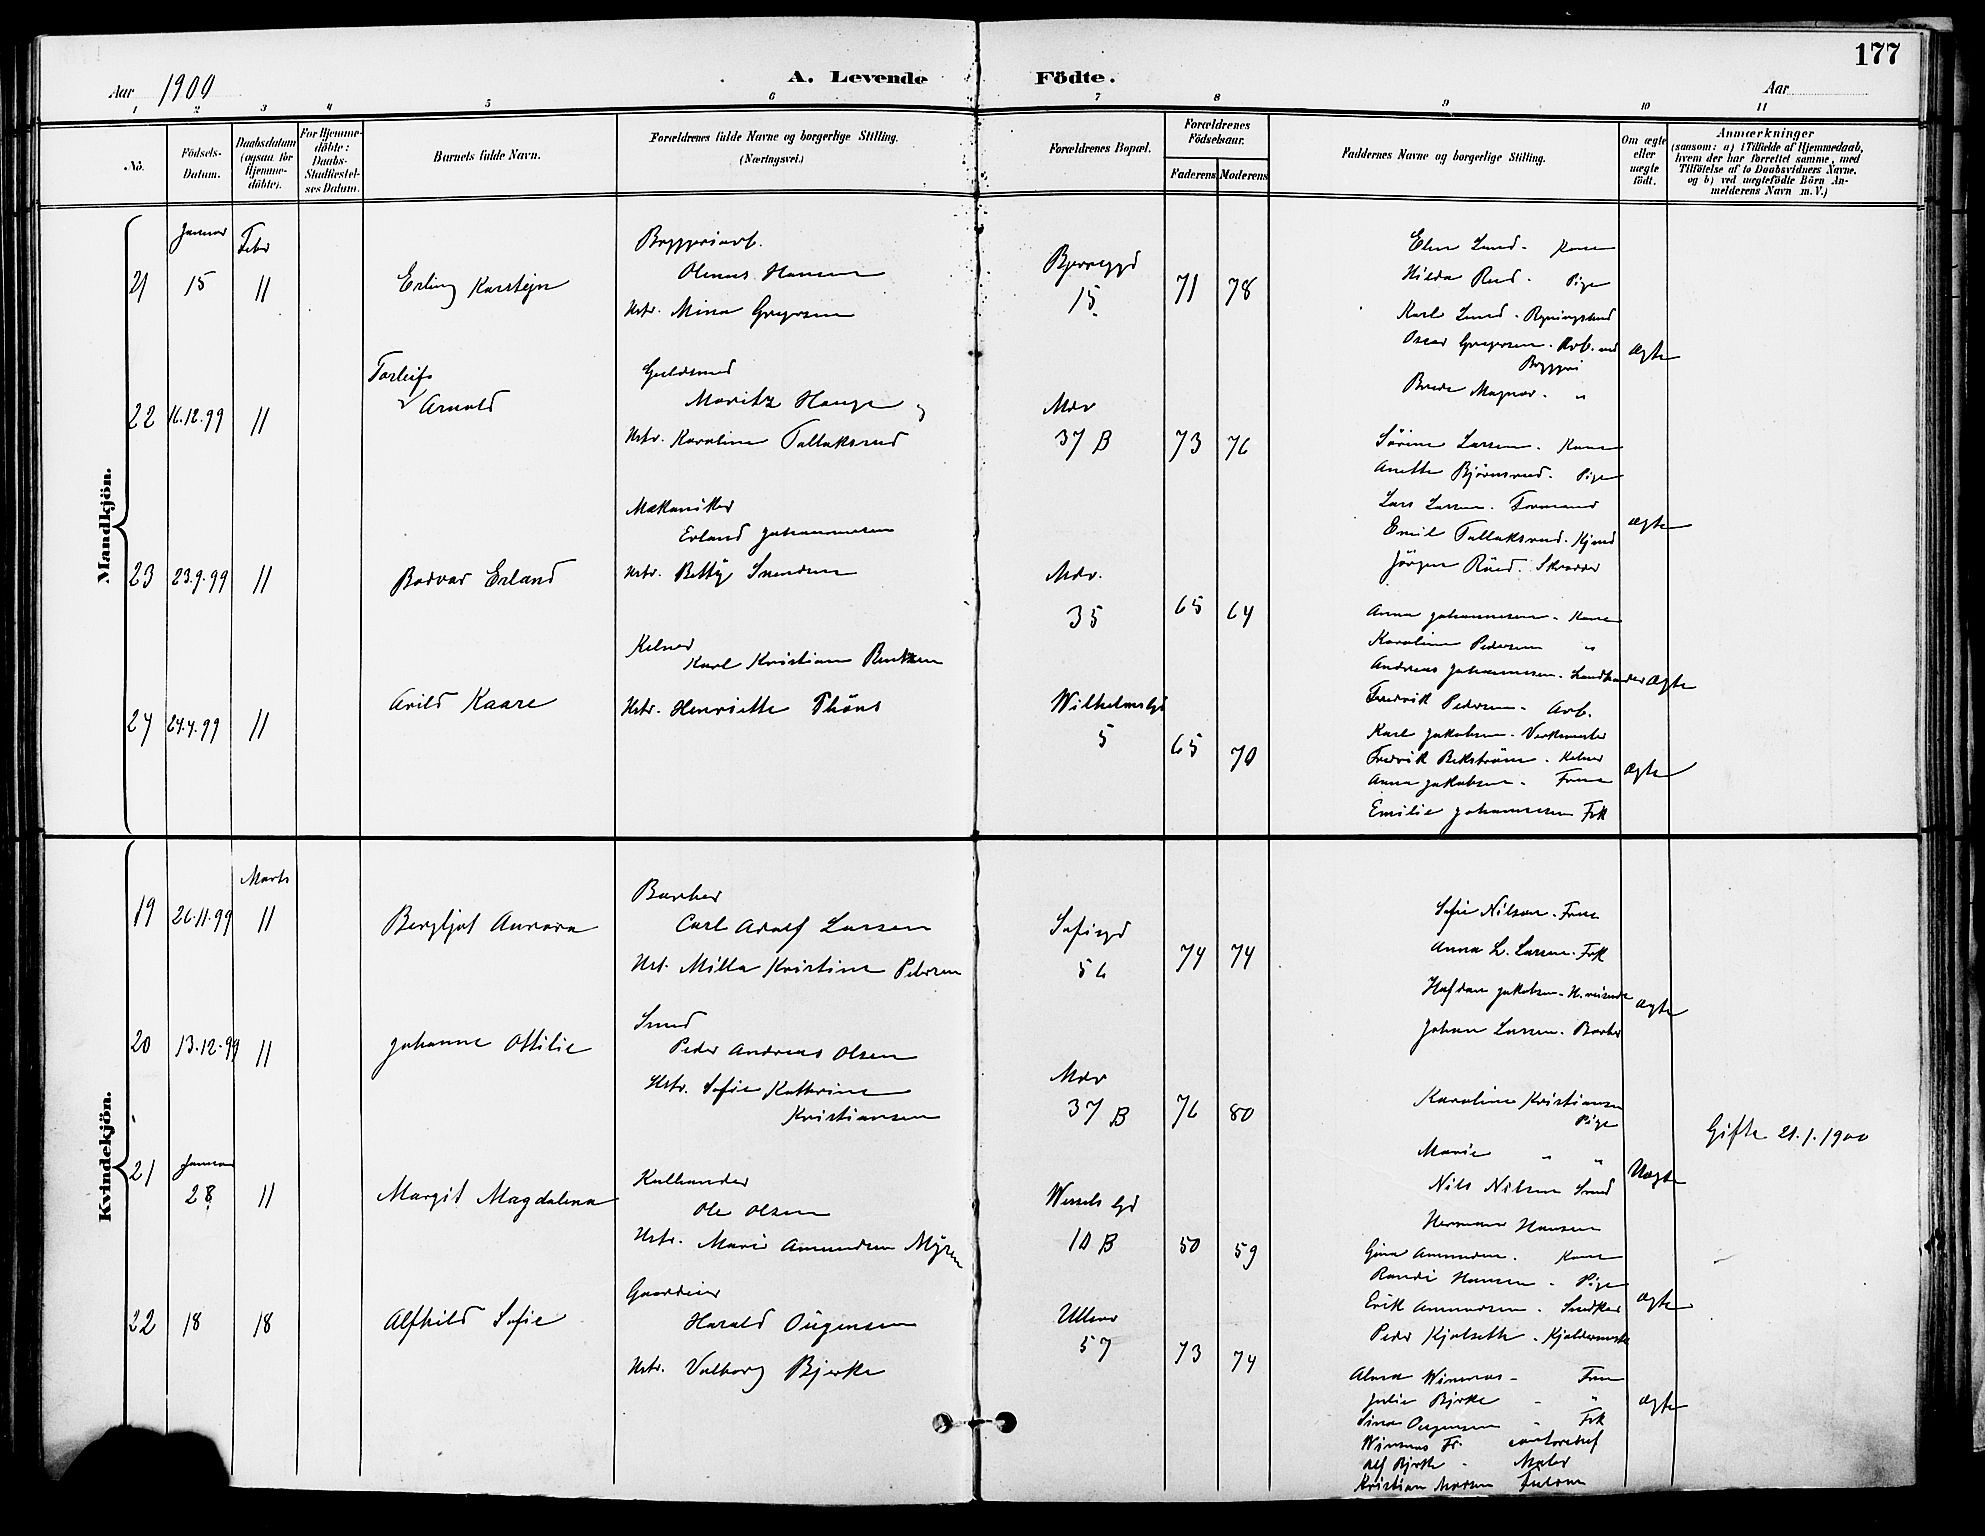 177
Aar 1900
A. Levende Födte.
Aar
1 2 3 4 5 6 7 8 9 10 11
No.
Födsels-Datum.
Daabsdatum (ogsaa for Hjemme-döbte).
For Hjemme-döbte: Daabs-Stadfæstel-ses Datum.
Barnets fulde Navn.
Forældrenes fulde Navne og borgerlige Stilling. (Næringsvei.)
Forældrenes Bopæl.
Forældrenes Födselsaar.
Faderens Moderens
Faddernes Navne og borgerlige Stilling.
Om ægte eller uægte födt.
Anmærkninger
(saasom: a) i Tilfælde af Hjemmedaab,
hvem der har forrettet samme, med
Tilföielse af to Daabsvidners Navne,
og b) ved uægtefödte Börn An-
melderens Navn m. V.)
Mandkjön.
Januar Febr
21 15 11 Erling Karsten
Bryggeriarb.
Olenus Hansen
Hstr. Mina Gregersen
Bjerregd
15 71 78
Elen Lund - Kone
Hilda Rud - Pige
Karl Lund - Bygningssnd
Oscar Gregersen - Arb. ved
Bryggeri
Magnar - "
ægte
22 16.12.99 11 Torleif
Arnold
Guldsmed
Moritz Hauge
Hstr. Karoline Tollaksrud
Mdv
37 B 73 76
Sörine Larsen - Kone
Anette Björnsrud - Pige
Lars Larsen - Formand
Emil Tollaksrud -
Jörgen Rud. Skrædder
ægte
23 23.9.99 11 Bodvar Erland
Mekaniker
Erland Johannesen
Hstr. Betty Svendsen
Mdv.
35 65 64
Anna Johannesen - Kone
Karoline Pedersen "
Andreas Johannesen - Landhandler
Fredrik Pedersen - Arb.
ægte
24 24.4.99 11 Arild Kaare
Kelner
Karl Kristian Berntsen
Hstr. Henriette Thöns
Wilhelmsgd
5 65 70
Karl Jakobsen - Verkmester
Fredrik Bekström - Kelner
Anna Jakobsen - Frue
Emilie Johannesen Frk
ægte
Kvindekjön.
Marts
19 26.11.99 11 Bergljot Aurora
Barber
Carl Adolf Larsen
Hst. Milla Kristine Petersen
Sofiegd
56 74 74
Sofie Nilsen - Frue
Anna L. Larsen - Frk
Hafdan Jakobsen - H.reisende
Johan Larsen - Barber
ægte
20 13.12.99 11 Johanne Ottilie
Smed
Peder Andreas Olsen
Hstr. Sofie Kathrine
Kristiansen
Mdv
37 B 76 80
Karoline Kristiansen
Pige
Marie " "
Nils Nilsen Smed
Herman Hansen
Uægte
Gifte 21.1.1900
21 Januar
28 11 Margit Magdalena
Kulhandler
Ole Olsen
Hstr. Marie Amundsen Myren
Wessels gd
10 B 50 59
Gina Amundsen - Kone
Randi Hansen - Pige
Erik Amundsen - Snedker
Peder Kjölseth - Kjeldermester
ægte
22 18 18 Alfhild Sofie
Gaardeier
Harald Jörgensen
Hstr. Valborg Bjerke
Ullevv
57 73 74
Alma Winsnes - Frue
Julie Bjerke - "
Sina Jörgensen " Frk
Winsnes Fr.
Alf Bjerke - Maler
Kristian
ægte